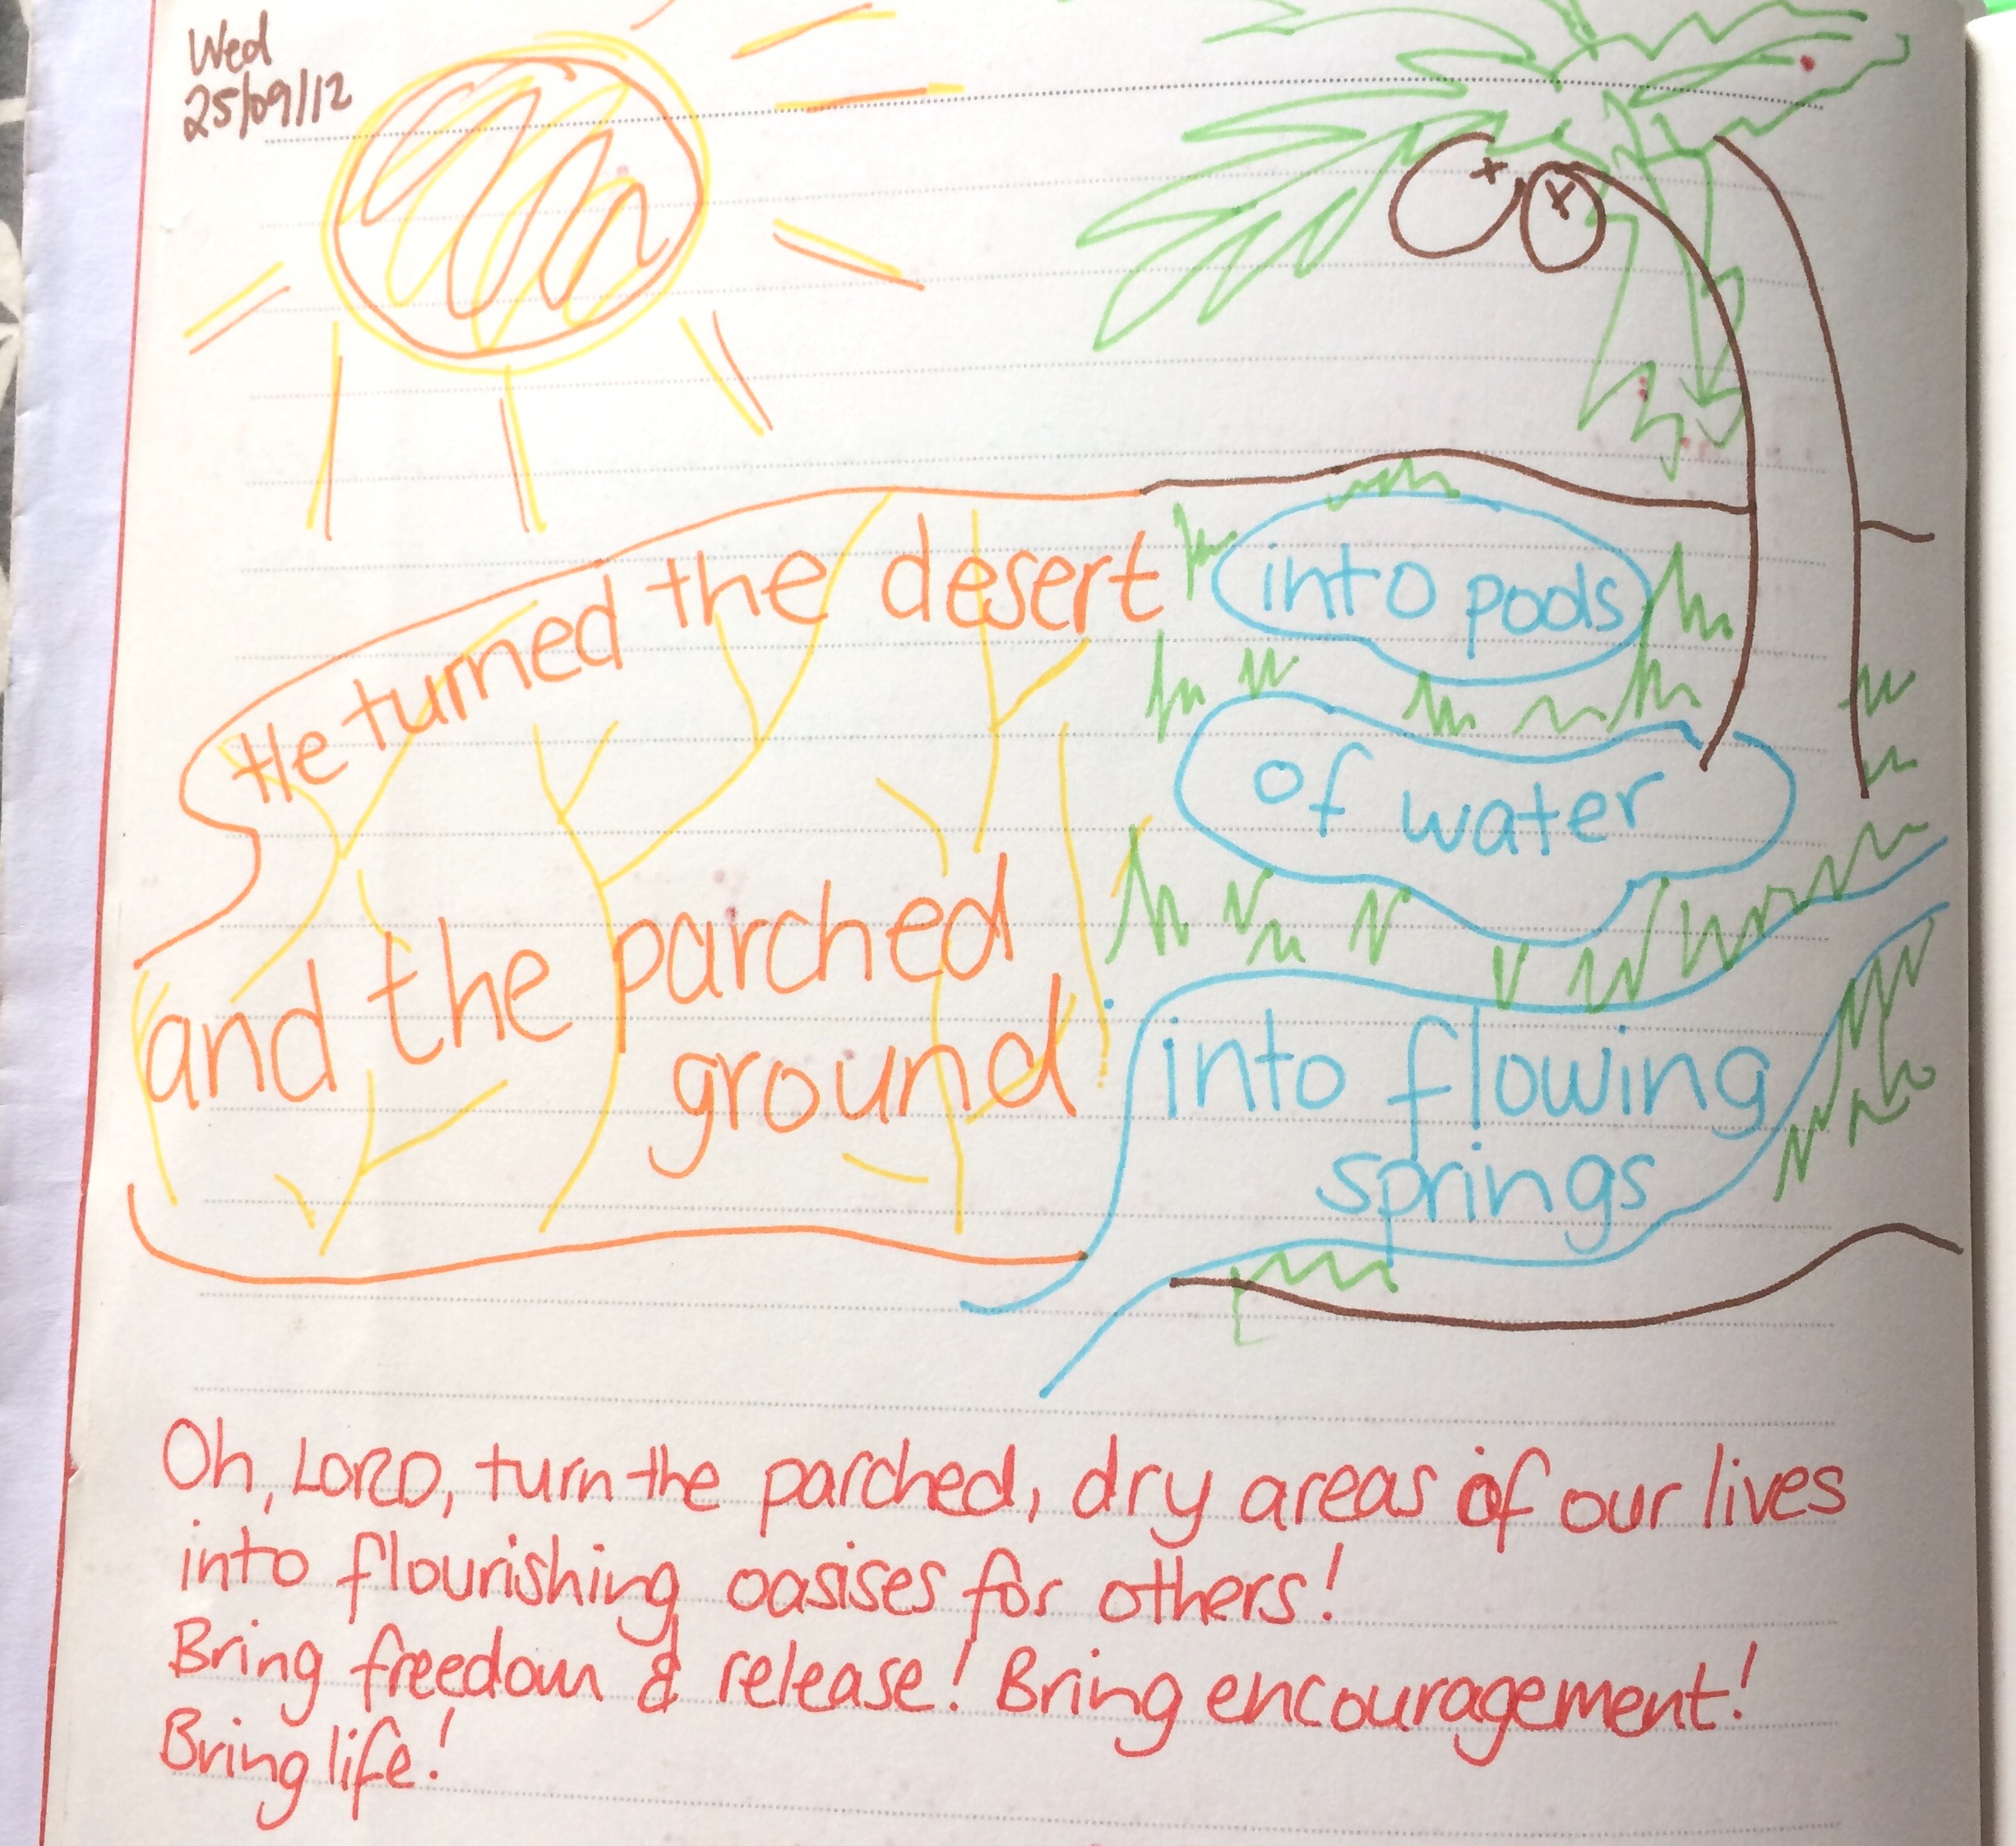 Wed
25/09/12
He turned the desert
into pods
of water
and the parched
ground
into flowing
springs
Oh, LORD, turn the parched, dry areas of our lives
into flourishing oasises for others!
Bring freedom & release! Bring encouragement!
Bring life!